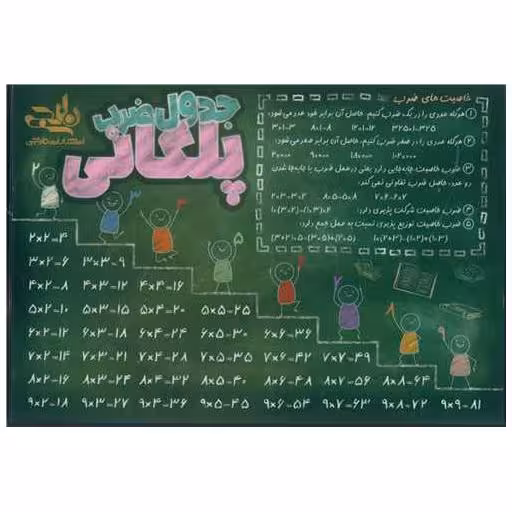 جدول ضرب
پلکانی
خاصیت های ضرب
① هرگاه عددی را در یک ضرب کنیم، حاصل آن برابر خود عدد می‌شود:
② هرگاه عددی را در صفر ضرب کنیم، حاصل آن برابر صفر می‌شود:
③ ضرب خاصیت جابه‌جایی دارد یعنی در عمل ضرب با جابه‌جا شدن
دو عدد، حاصل ضرب تفاوتی نمی‌کند:
④ ضرب خاصیت شرکت پذیری دارد:
⑤ ضرب خاصیت توزیع پذیری نسبت به عمل جمع دارد:
۲ ۳ ۴ ۵ ۶ ۷ ۸ ۹
۲×۲=۴
۳×۲=۶ ۳×۳=۹
۴×۲=۸ ۴×۳=۱۲ ۴×۴=۱۶
۵×۲=۱۰ ۵×۳=۱۵ ۵×۴=۲۰ ۵×۵=۲۵
۶×۲=۱۲ ۶×۳=۱۸ ۶×۴=۲۴ ۶×۵=۳۰ ۶×۶=۳۶
۷×۲=۱۴ ۷×۳=۲۱ ۷×۴=۲۸ ۷×۵=۳۵ ۷×۶=۴۲ ۷×۷=۴۹
۸×۲=۱۶ ۸×۳=۲۴ ۸×۴=۳۲ ۸×۵=۴۰ ۸×۶=۴۸ ۸×۷=۵۶ ۸×۸=۶۴
۹×۲=۱۸ ۹×۳=۲۷ ۹×۴=۳۶ ۹×۵=۴۵ ۹×۶=۵۴ ۹×۷=۶۳ ۹×۸=۷۲ ۹×۹=۸۱